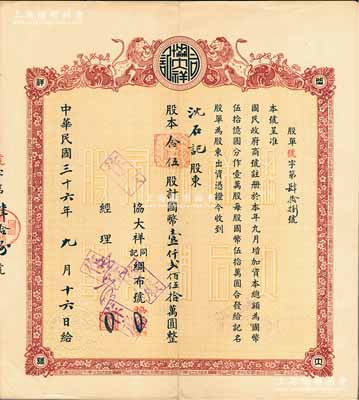 股單號字第肆拾捌號
本號呈准
國民政府商號註册於本年九月增加資本總額為國幣
伍拾億圓分作壹萬股每股國幣伍拾萬圓合發給記名
股單為股東出資憑證今收到
沈石記股東
股本拾伍股計國幣
佰伍拾萬圓整
協大祥同記綢布號
經理
中華民國三十六年九月十六日給
祥
協
號
大